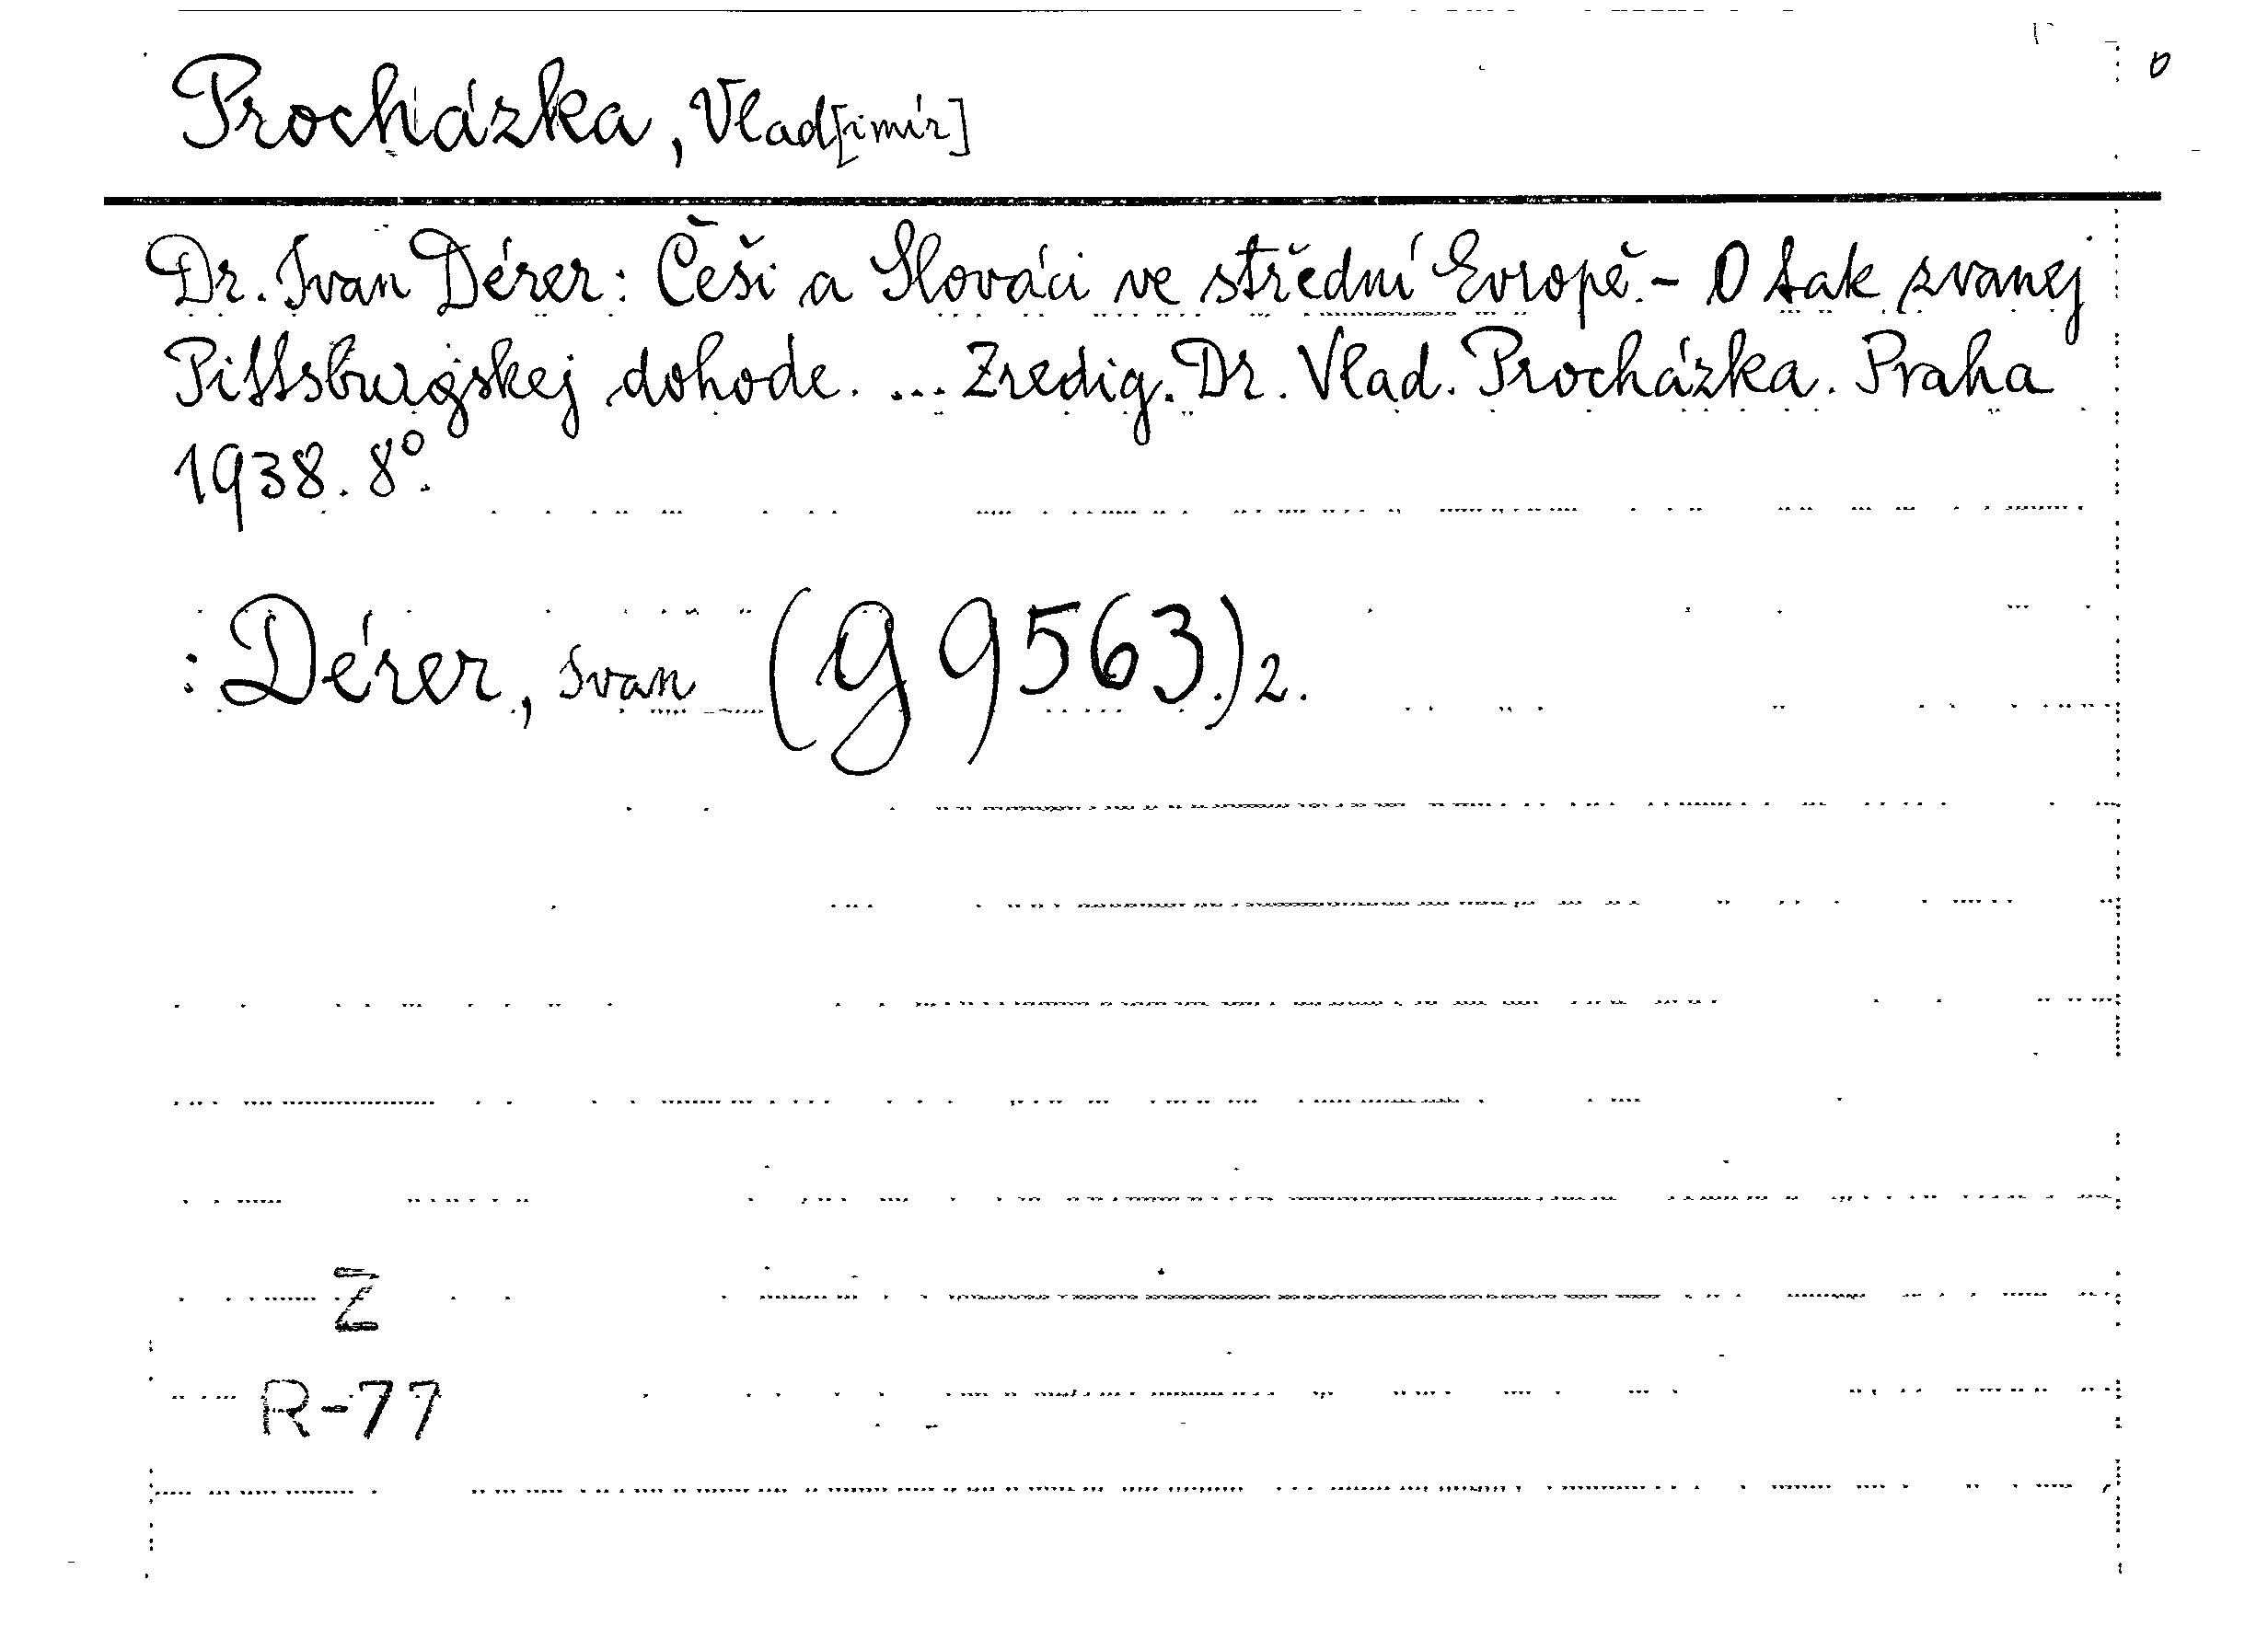 Procházka, Vlad[imír]
Dr. Ivan Dérer: Češi a Slováci ve střední Evropě. - O tak zvanej
Pittsburgskej dohode. ... Zredig. Dr. Vlad. Procházka. Praha
1938. 8°.
: Dérer, Ivan (g 9563.) 2.
Z
R-77